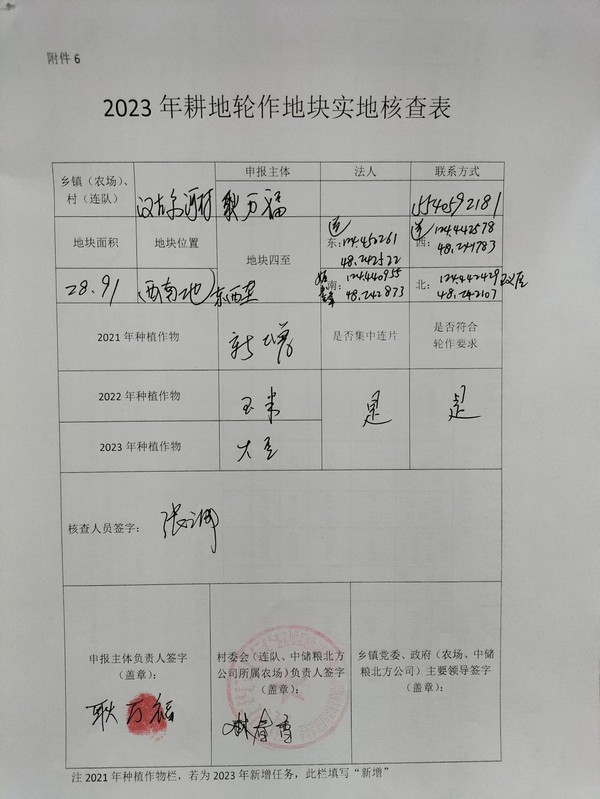 附件 6
2023 年耕地轮作地块实地核查表
乡镇（农场）、村（连队）
汉古尔河村
申报主体
耿万福
法人
联系方式
1554592181
地块面积
地块位置
地块四至
东: 124.452261
48.242522
西: 124.442578
48.241783
28.91
(西南地)
南: 124.440955
48.242873
北: 124.442429
48.242107
2021 年种植作物
新增
是否集中连片
是否符合
轮作要求
2022 年种植作物
玉米
是
是
2023 年种植作物
大豆
核查人员签字：
申报主体负责人签字
（盖章）：
耿万福
村委会（连队、中储粮北方
公司所属农场)负责人签字
（盖章）：
乡镇党委、政府（农场、中储
粮北方公司）主要领导签字
（盖章）：
注 2021 年种植作物栏，若为 2023 年新增任务，此栏填写“新增”